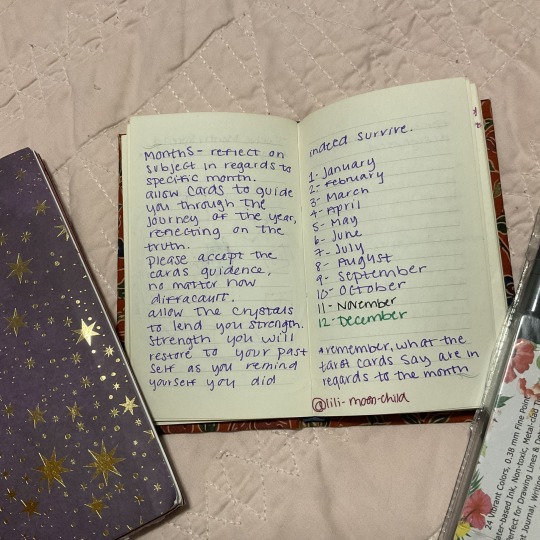 Months - reflect on
subject in regards to
specific month.
allow cards to guide
you through the
journey of the year,
reflecting on the
truth.
Please accept the
cards guidence,
no matter how
diffacault.
allow the crystals
to lend you strength.
Strength you will
restore to your past
self as you remind
yourself you did
indeed survive.
1- January
2- February
3- March
4- April
5- May
6- June
7- July
8- August
9- September
10- October
11- November
12- December
*remember, what the
tarot cards say are in
regards to the month
@lili-moon-child
24 Vibrant Colors, 0.38 mm Fine Point
Water-based Ink, Non-toxic, Metal-clad
Perfect for Drawing Lines &
Journal, Writing